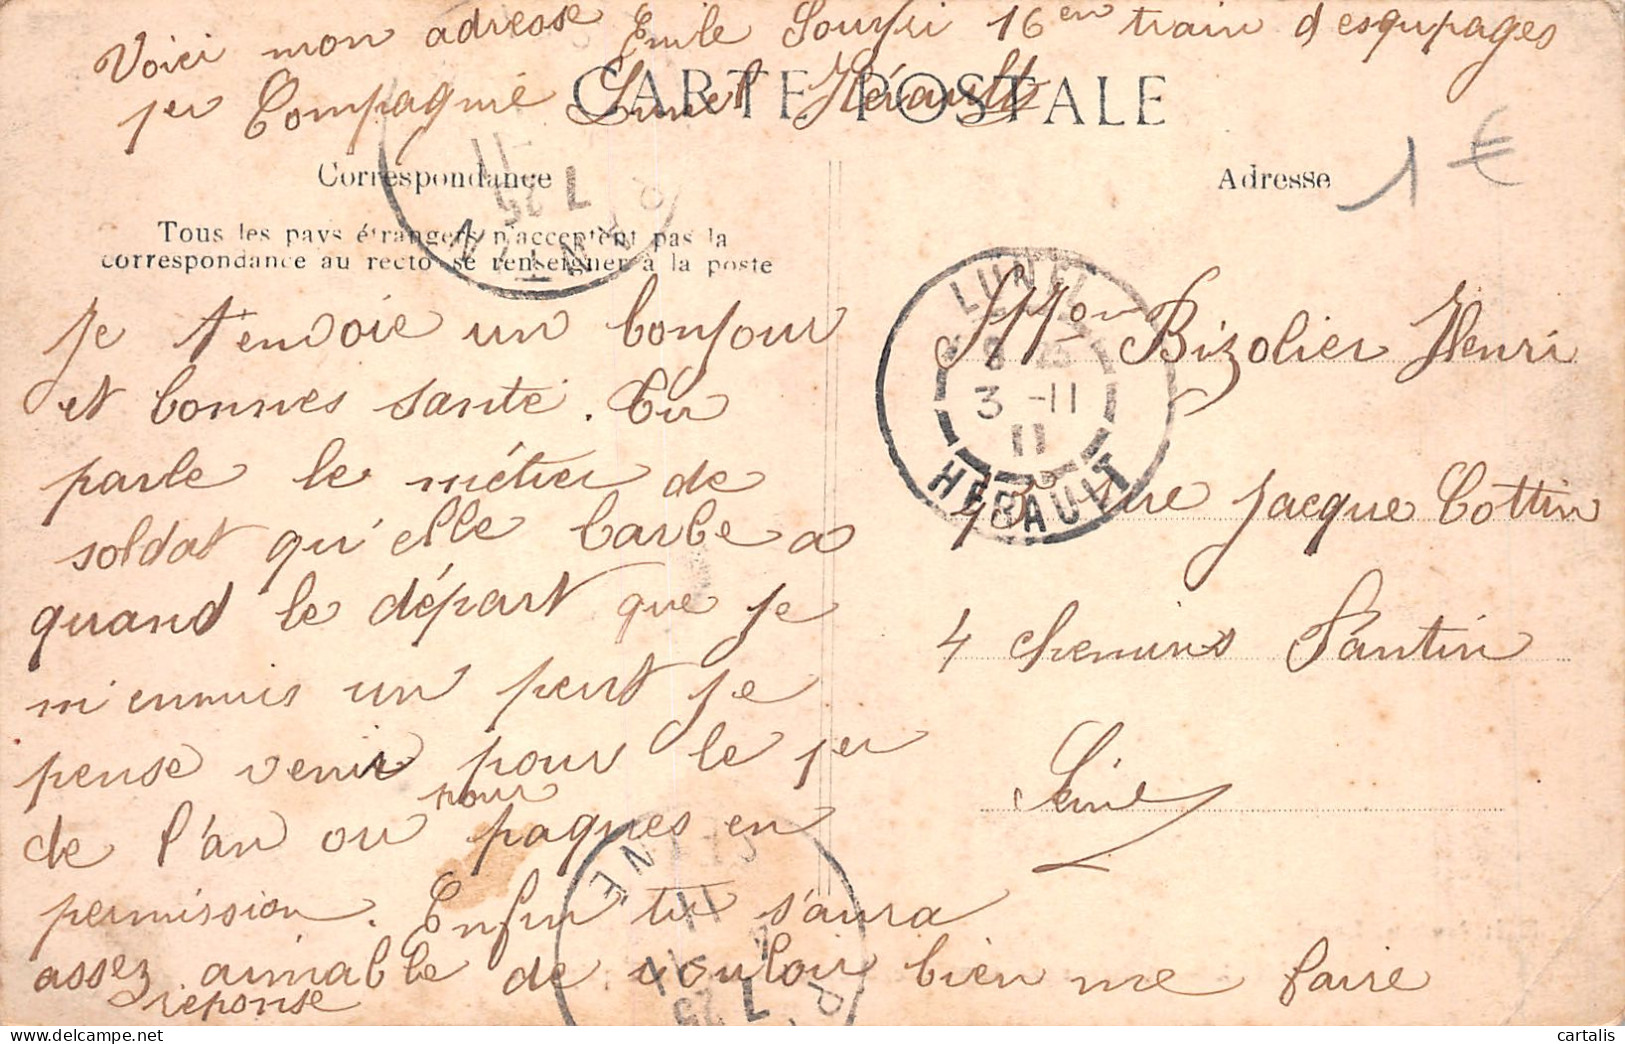 Voici mon adresse Emile 16 en train d esqupages
1er Compagnie Lunel Hérault
CARTE POSTALE
Correspondance
Adresse
1 €
Tous les pays étrangers n'acceptent pas la
correspondance au recto se renseigner à la poste
Je t'envoie un bonjour
et bonnes santé. Tu
parle le métier de
soldat qu'elle barbe a
quand le départ que je
m'ennuis un peut je
pense venir pour le 1er
de l'an ou pour paques en
permission. Enfin tu s'aura
assez aimable de vouloir bien me faire
réponse
LUNEL
8
3 -11
11
HERAULT
Mon Bizolier Henri
rue Jacque Cottin
4 chemins Pantin
Seine
PANTIN
11
7 25
SEINE
11
7 25
cartalis